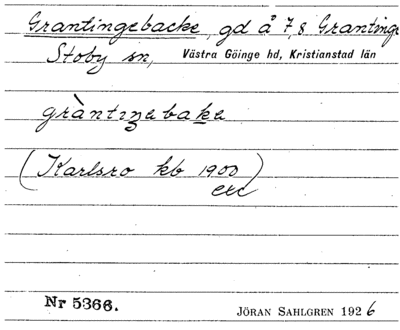 Grantingebacke, gd å 7, 8 Grantinge
Stoby sn, Västra Göinge hd, Kristianstad län
gràntiŋebake
(Karlsro kb 1900)
exc
Nr 5366.
JÖRAN SAHLGREN 1926